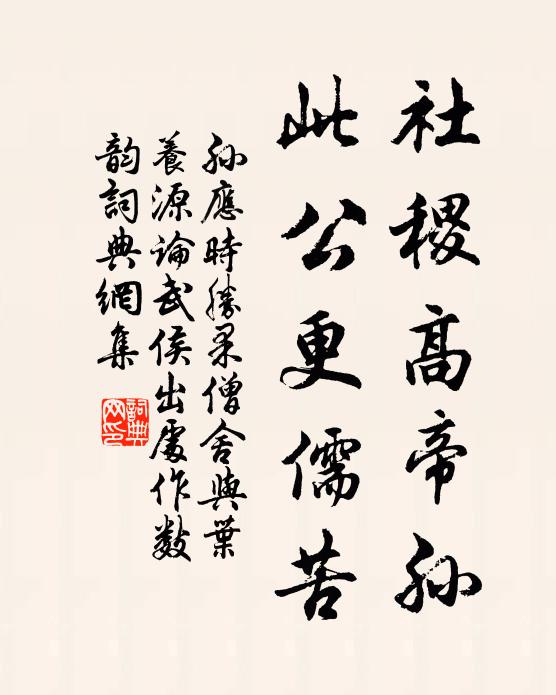 社稷高帝孙
此公更儒苦
孙應時勝果僧舍與葉
養源論武侯出處作數
韵詞典網集
詞典
网印